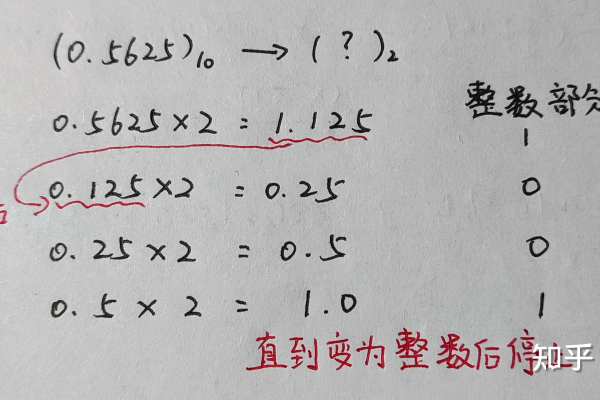 (0.5625)₁₀ → (?)₂
整数部分
0.5625×2 = 1.125 1
后
0.125×2 = 0.25 0
0.25×2 = 0.5 0
0.5×2 = 1.0 1
直到变为整数后停止
知乎